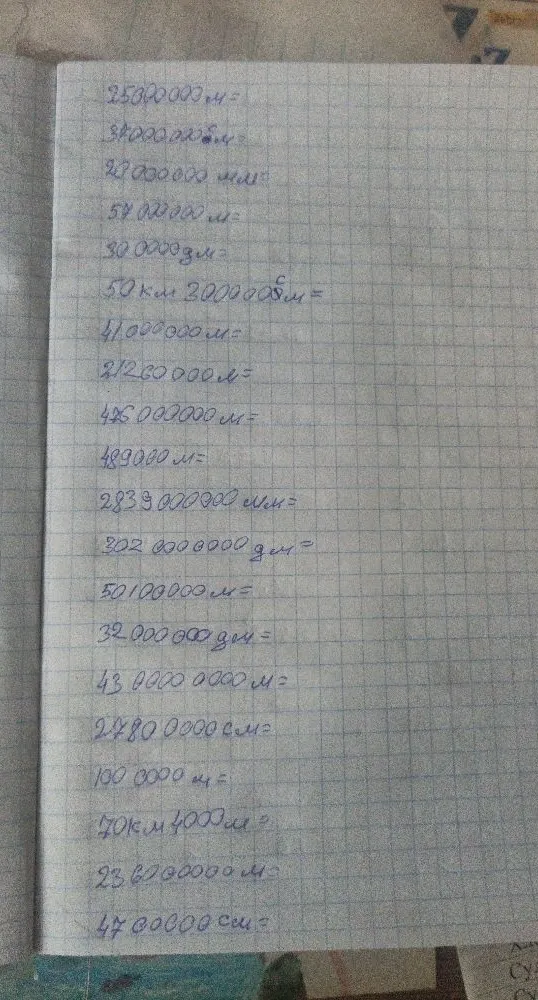 zebra
25000000м=
34000000см=
20000000 мм=
57000000м=
300000дм=
50 км 3000000см=
41000000м=
21260000м=
476000000м=
489000м=
2839000000мм=
3020000000 дм=
50100000м=
32000000дм=
4300000000м=
27800000см=
1000000 м=
70км 4000м=
236000000м=
4700000см=